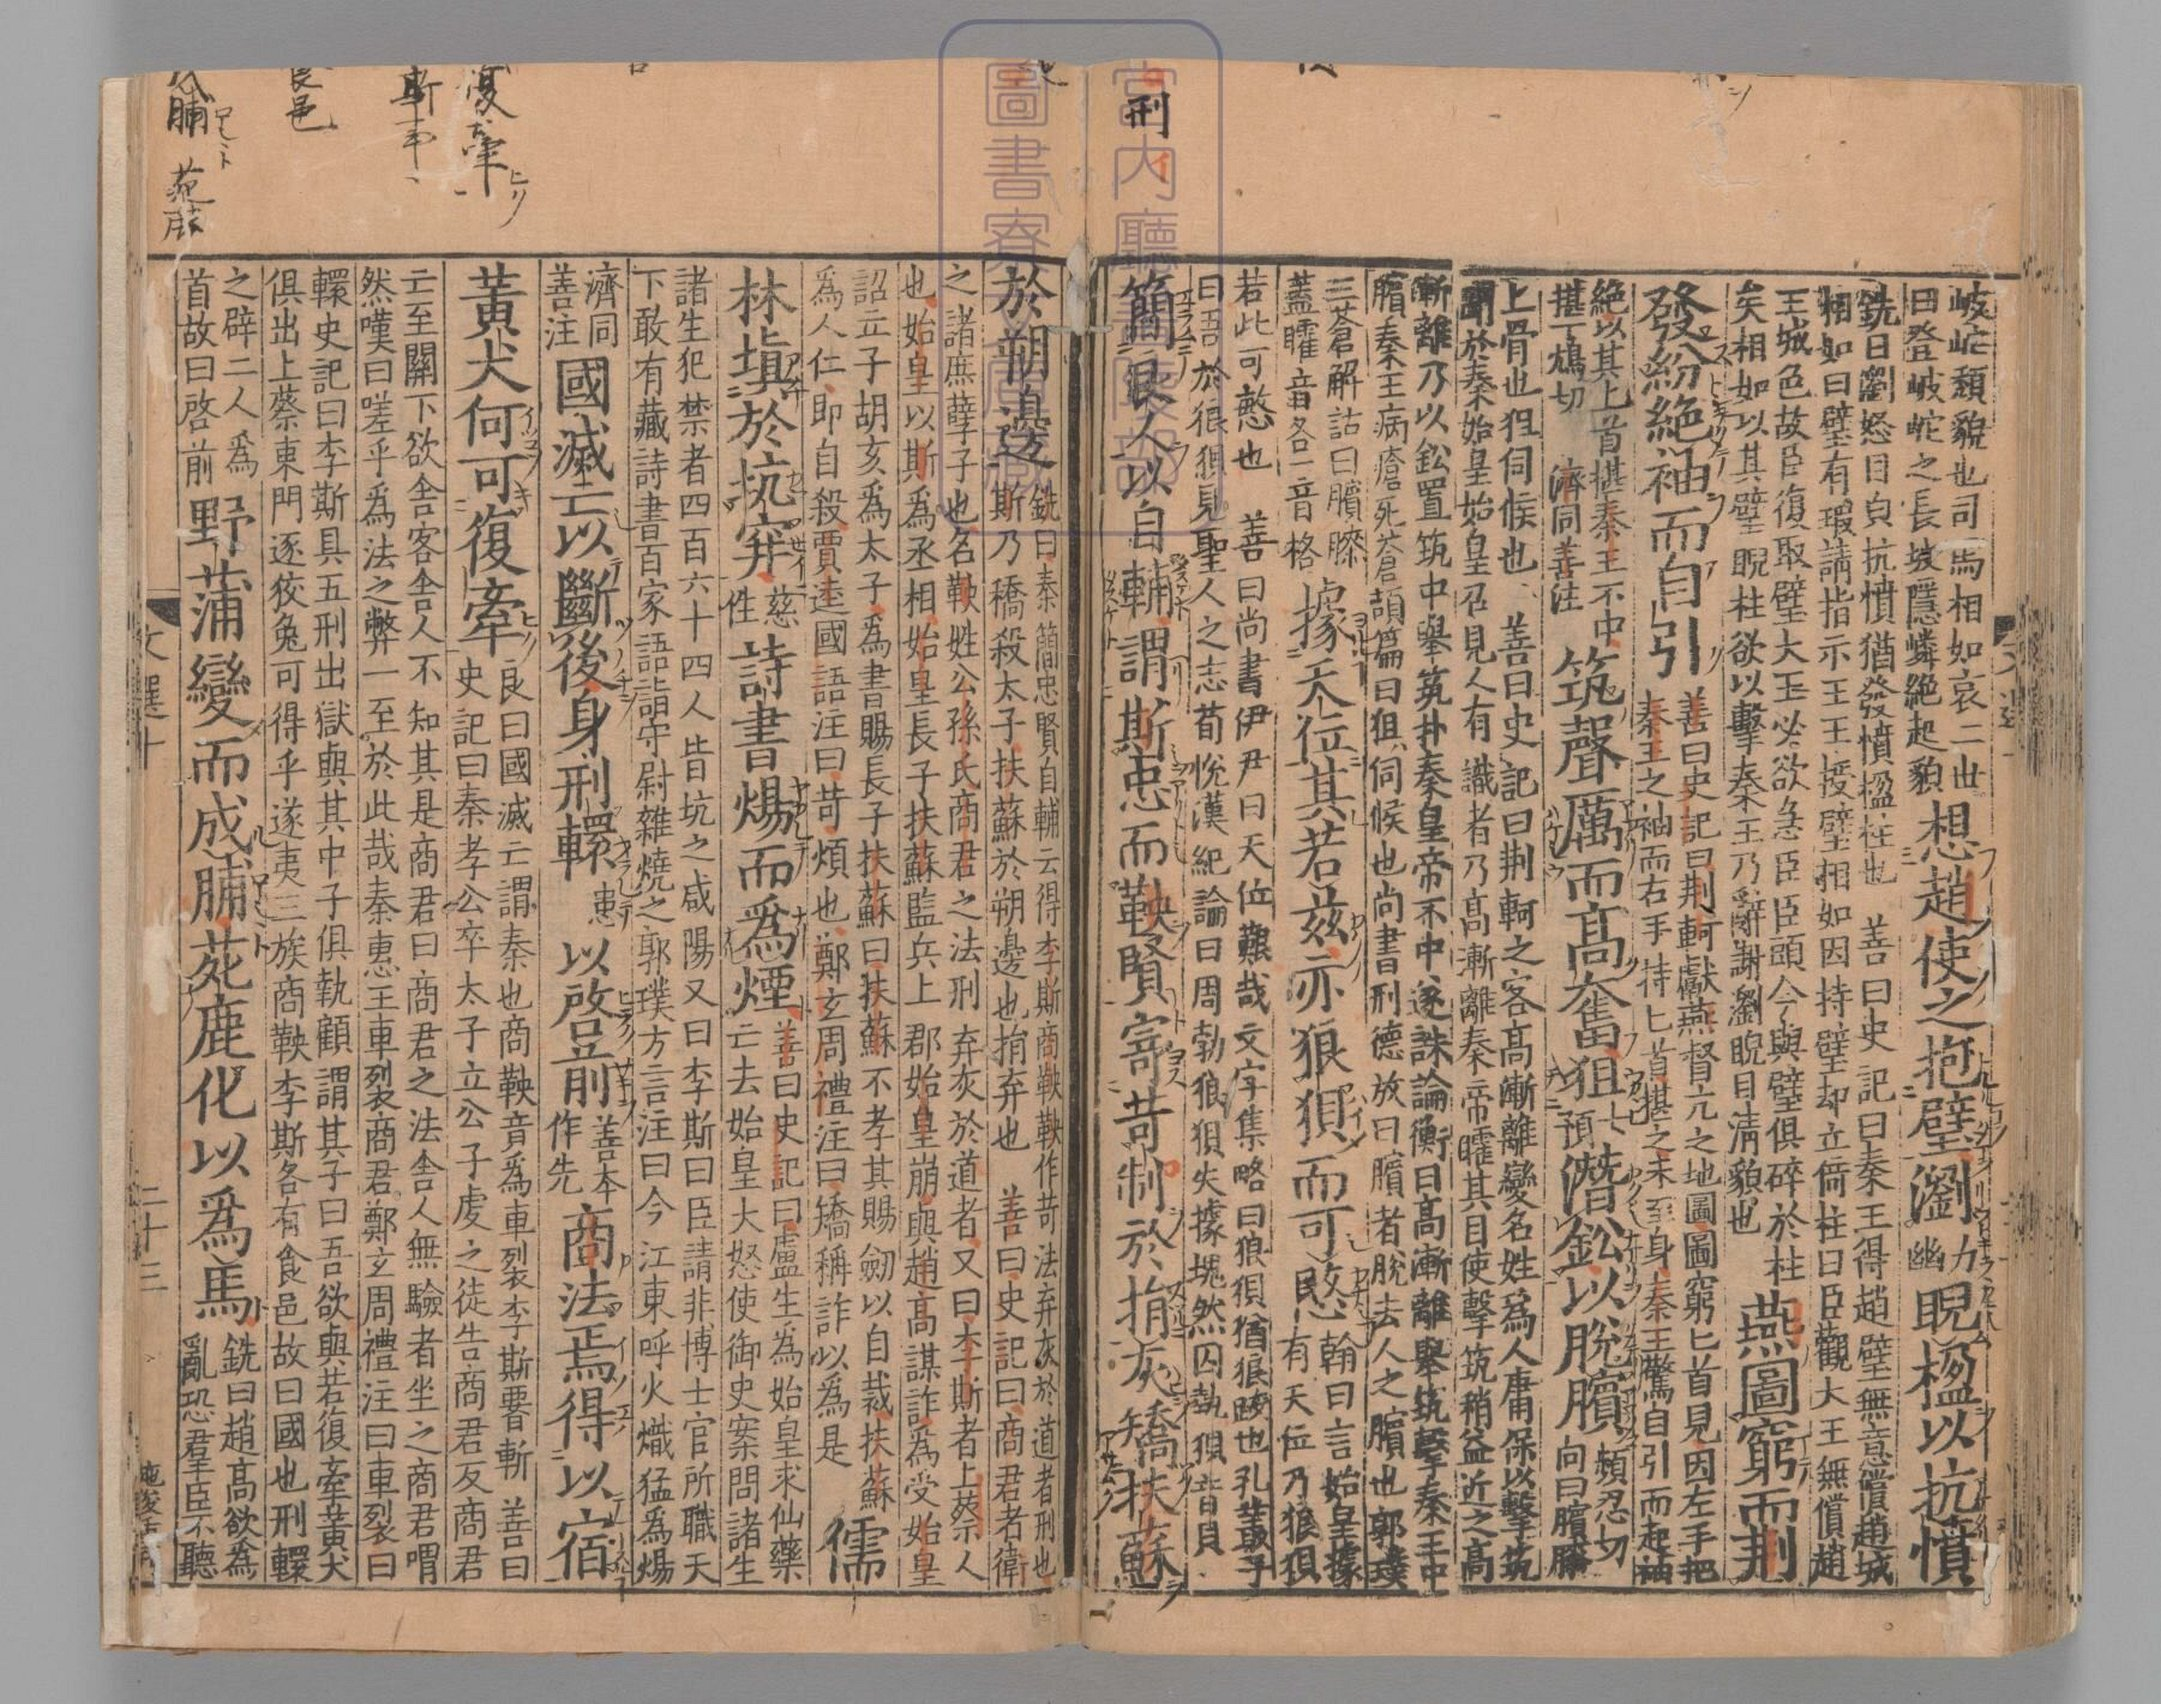 岐㟎頽貌也司馬相如哀二世
曰登岐㟎之長坂隱嶙絶起貌
想趙使之抱璧瀏力幽睨楹以抗憤
銑曰瀏怒目皃抗憤猶發憤楹柱也 善曰史記曰秦王得趙璧無意償趙城
相如曰璧有瑕請指示王王授璧相如因持璧却立倚柱曰臣觀大王無償趙
王城色故臣復取璧大王必欲急臣臣頭今與璧俱碎於柱
矣相如以其璧睨柱欲以擊秦王乃辭謝瀏睨目清貌也
燕圖窮而荆
發紛絶袖而自引
善曰史記曰荆軻獻燕督亢之地圖圖窮匕首見因左手把
秦王之袖而右手持匕首揕之未至身秦王驚自引而起袖
絶以其上首揕秦王不中
揕丁鴆切 濟同善注
筑聲厲而高奮狙七預潛鈆以脫臏頻忍切
向曰臏膝
上骨也狙伺候也 善曰史記曰荆軻之客高漸離變名姓爲人庸保以擊筑
聞於秦始皇始皇召見人有識者乃高漸離秦帝矐其目使擊筑稍益近之高
漸離乃以鈆置筑中舉筑扑秦皇帝不中遂誅論衡曰高漸離舉筑擊秦王中
臏秦王病瘡死蒼頡篇曰狙伺候也尚書刑德放曰臏者脫去人之臏也郭璞
三蒼解詁曰臏膝
蓋矐音各一音格
據天位其若兹亦狼狽而可愍
翰曰言始皇據
有天位乃狼狽
若此可愍也 善曰尚書伊尹曰天位艱哉文字集略曰狼狽猶狼跋也孔叢子
曰吾於狼狽見聖人之志荀悅漢紀論曰周勃狼狽失據塊然囚執狽音貝
簡良人以自輔謂斯忠而鞅賢寄苛制於捐灰矯扶蘇
於朔邊
銑曰秦簡忠賢自輔云得李斯商鞅鞅作苛法弃灰於道者刑也
斯乃矯殺太子扶蘇於朔邊也捐弃也 善曰史記曰商君者衛
之諸庶孽子也名鞅姓公孫氏商君之法刑弃灰於道者又曰李斯者上蔡人
也始皇以斯爲丞相始皇長子扶蘇監兵上郡始皇崩與趙高謀詐爲受始皇
詔立子胡亥爲太子爲書賜長子扶蘇曰扶蘇不孝其賜劒以自裁扶蘇
爲人仁即自殺賈逵國語注曰苛煩也鄭玄周禮注曰矯稱詐以爲是
儒
林塡於坑穽慈性詩書煬而爲煙
善曰史記曰盧生爲始皇求仙藥
亡去始皇大怒使御史案問諸生
諸生犯禁者四百六十四人皆坑之咸陽又曰李斯曰臣請非博士官所職天
下敢有藏詩書百家語詣守尉雜燒之郭璞方言注曰今江東呼火熾猛爲煬
濟同
善注
國滅亡以斷後身刑轘患以啓前
善本
作先
商法焉得以宿
黃犬何可復牽
良曰國滅亡謂秦也商鞅音爲車裂李斯要斬 善曰
史記曰秦孝公卒太子立公子虔之徒告商君反商君
亡至關下欲舍客舍人不知其是商君曰商君之法舍人無驗者坐之商君喟
然嘆曰嗟乎爲法之弊一至於此哉秦惠王車裂商君鄭玄周禮注曰車裂曰
轘史記曰李斯具五刑出獄與其中子俱執顧謂其子曰吾欲與若復牽黃犬
俱出上蔡東門逐狡兔可得乎遂夷三族商鞅李斯各有食邑故曰國也刑轘
之辟二人爲
首故曰啓前
野蒲變而成脯苑鹿化以爲馬
銑曰趙高欲爲
亂恐群臣不聽
文選十
二十三
刑
復牽
斬
食邑
脯
苑鹿
宮内廳
書陵部
圖書寮